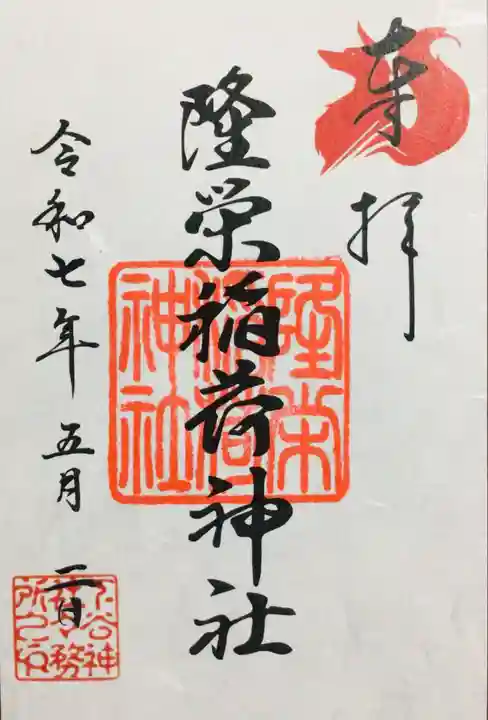 奉拝
隆栄稲荷神社
隆栄
稲荷
神社
令和七年五月二日